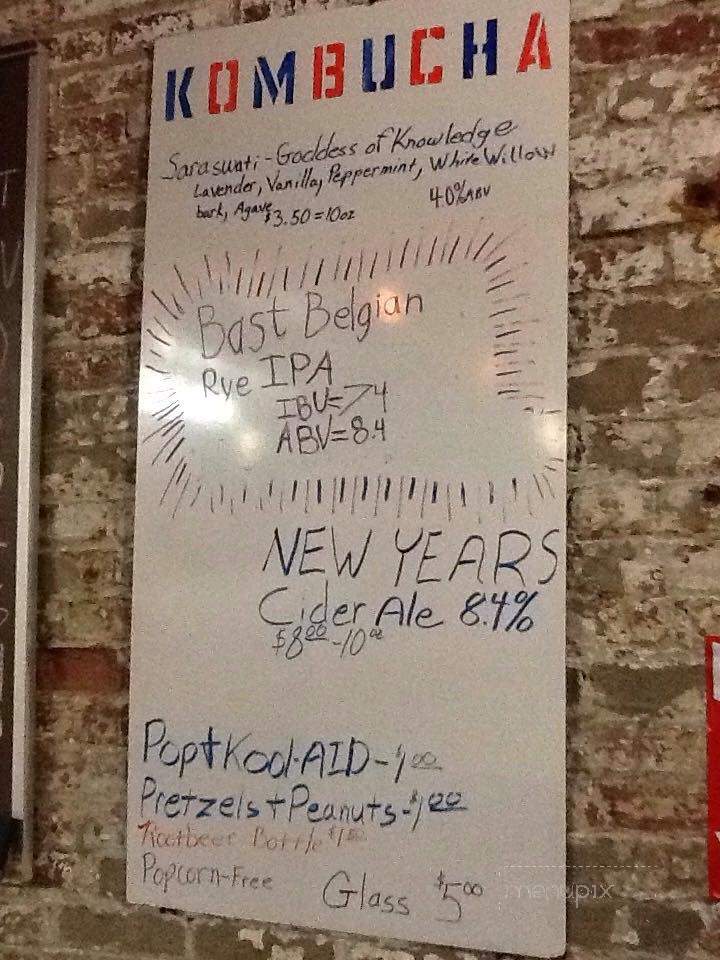 KOMBUCHA
Saraswati - Goddess of Knowledge
Lavender, Vanilla, Peppermint, White Willow
bark, Agave 4.0% ABV
$3.50 = 10oz
Bast Belgian
Rye IPA
IBU= 74
ABV= 8.4
NEW YEARS
Cider Ale 8.4%
$8.00 - 10oz
Pop + Kool-AID - 1.00
Pretzels + Peanuts - $1.00
Rootbeer Bottle
Popcorn-Free
Glass $5.00
menupix